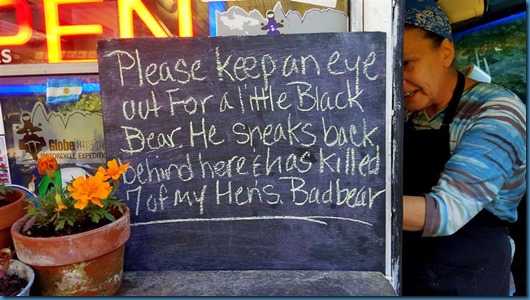 PEN
Please keep an eye
out For a little Black
Bear. He sneaks back
behind here & has killed
7 of my Hens. Bad bear
Globe
MOTORCYCLE EXPEDITI